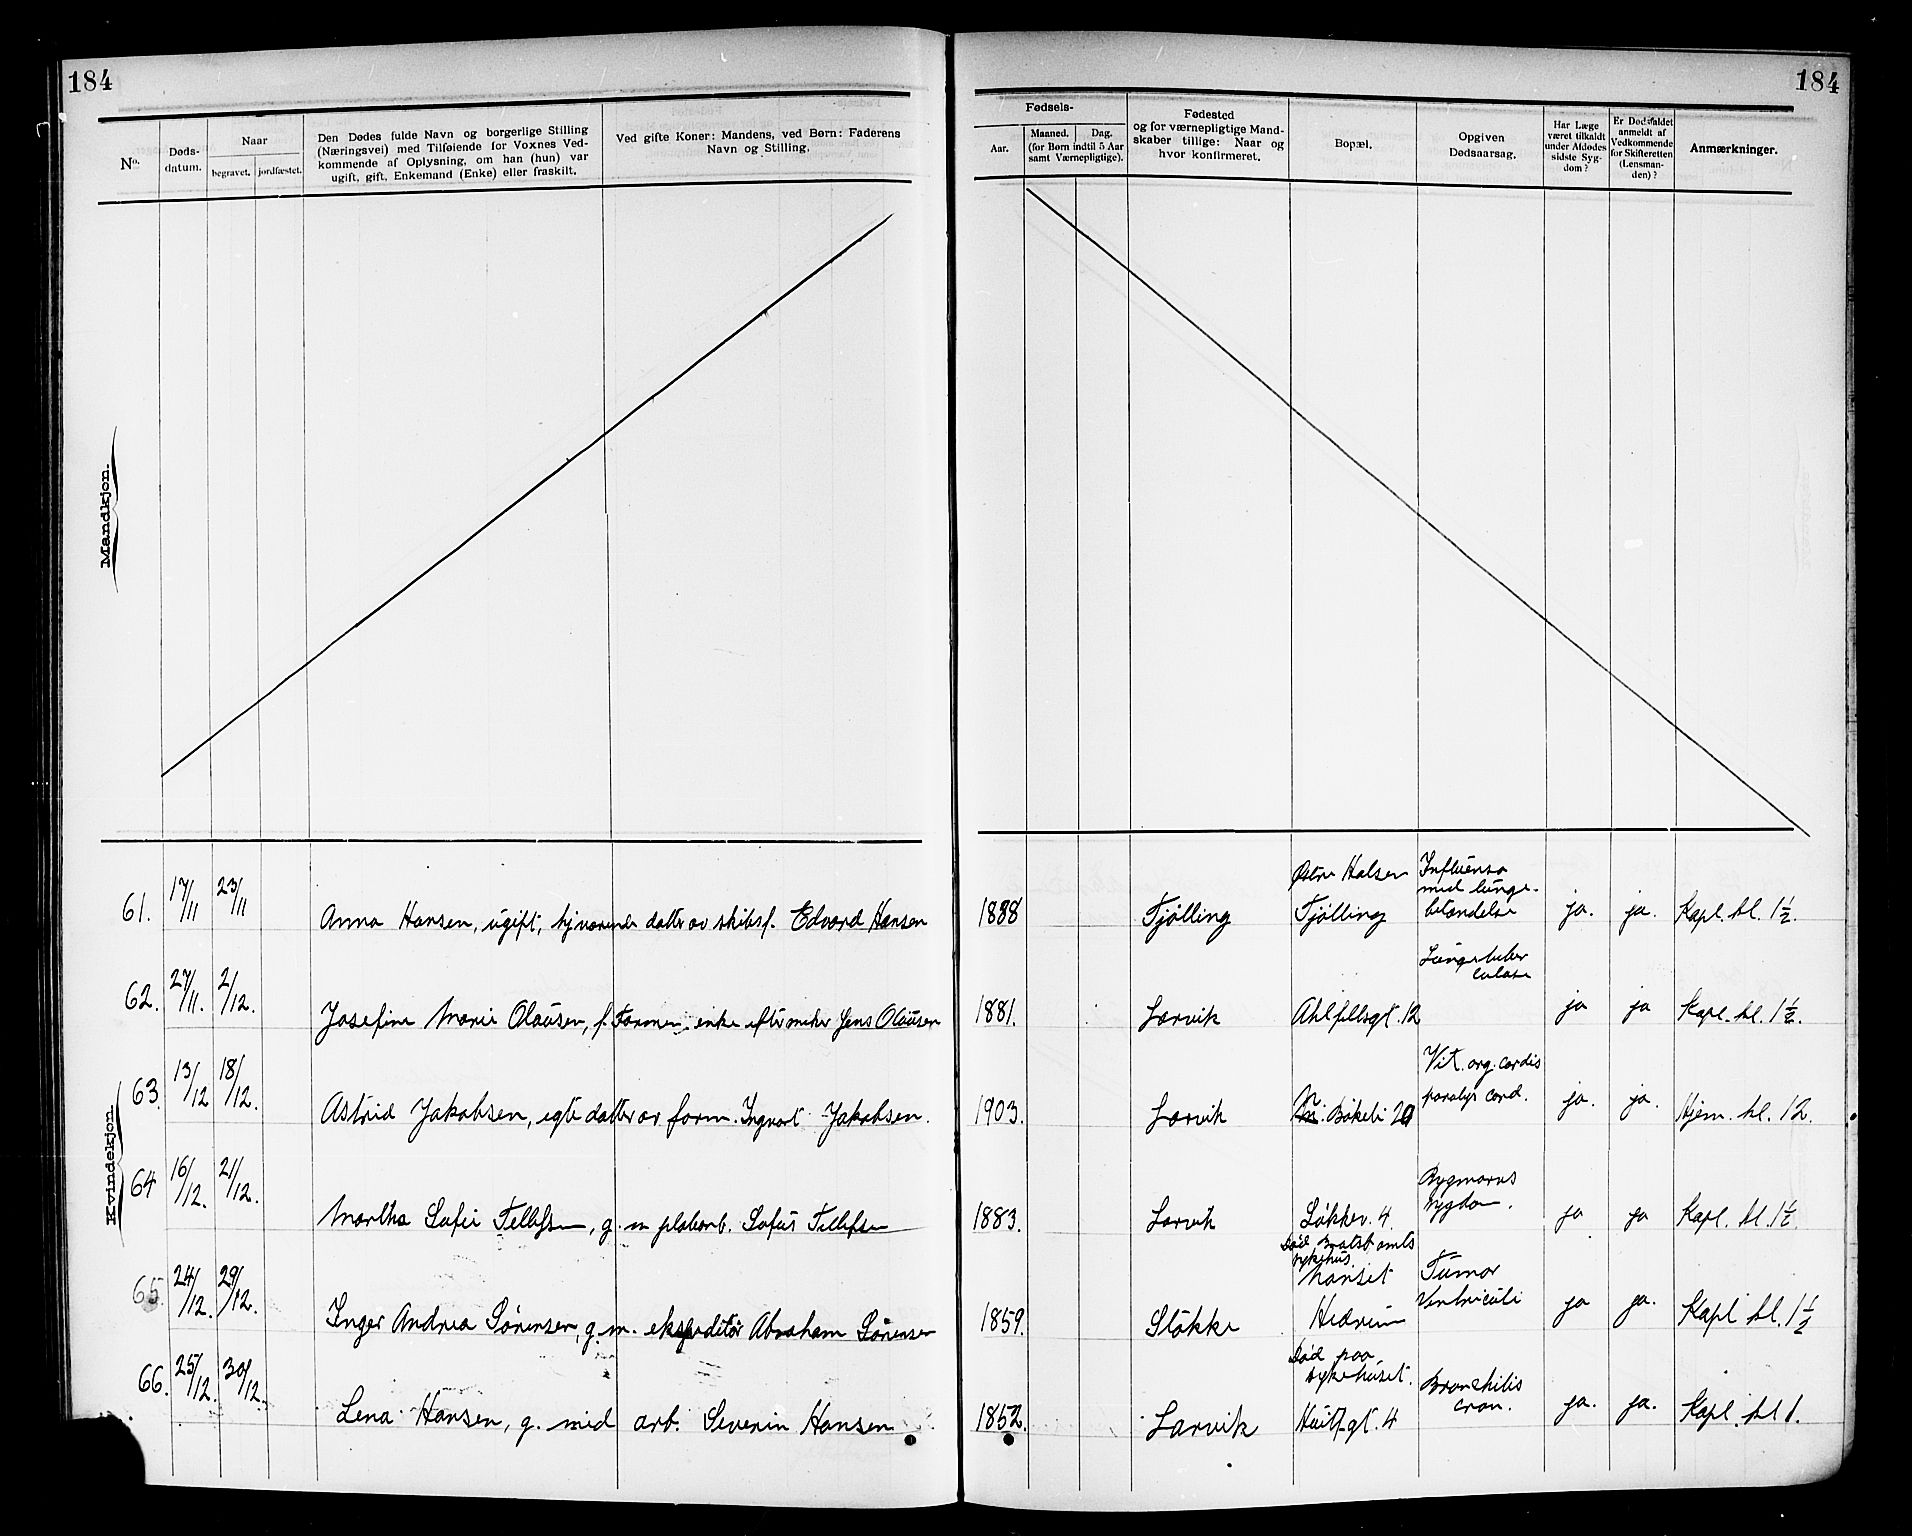 184
184
No. Døds-datum. Naar begravet. jordfæstet. Den Dødes fulde Navn og borgerlige Stilling (Næringsvei) med Tilføiende for Voxnes Vedkommende af Oplysning, om han (hun) var ugift, gift, Enkemand (Enke) eller fraskilt. Ved gifte Koner: Mandens, ved Børn: Faderens Navn og Stilling.
Fødsels- Aar. Maaned. Dag. (for Børn indtil 5 Aar samt Værnepligtige). Fødested og for værnepligtige Mandskaber tillige: Naar og hvor konfirmeret. Bopæl. Opgiven Dødsaarsag. Har Læge været tilkaldt under Afdødes sidste Sygdom? Er Dødsfaldet anmeldt af Vedkommende for Skifteretten (Lensmanden)? Anmærkninger.
Mandkjøn.
Kvindekjøn.
61. 17/11 23/11 Anna Hansen, ugift, hjværende datter av skibsf. Edvard Hansen 1888 Tjølling Østre Halsen Tjølling Influensa med lungebetændelse ja. ja. Kapl. kl. 1½.
62. 27/11. 2/12. Josefine Marie Olausen, f. Farmen, enke efter Jens Olausen 1881. Larvik Ahlfellsgt. 12 Lungetuberculose ja ja Kapl. kl. 1½.
63. 13/12 18/12. Astrid Jakobsen, egte datter av form. Ingvart Jakobsen. 1903. Larvik Bøkeli Vit. org. cordis paralys cord. ja. ja. Hjem. kl. 12.
64 16/12. 21/12. Martha Sofie Tellefsen, g. m platearb. Sofus Tellefsen 1883. Larvik Løkkev. 4. Rygmarvs sygdom. ja ja Kapl. kl. 1½.
65. 24/12. 29/12. Inger Andrea Sørensen, g. m. ekspeditør Abraham Sørensen 1859. Stokke Død Bratsb amts sykehus. Nanset Hedrum Tumor Ventriculi ja ja. Kapl kl. 1½
66. 25/12. 30/12. Lena Hansen, g. med arb. Severin Hansen 1852. Larvik Død paa sykehuset. Huitf.gt. 4 Bronchitis cron. ja. ja. Kapl. kl 1.